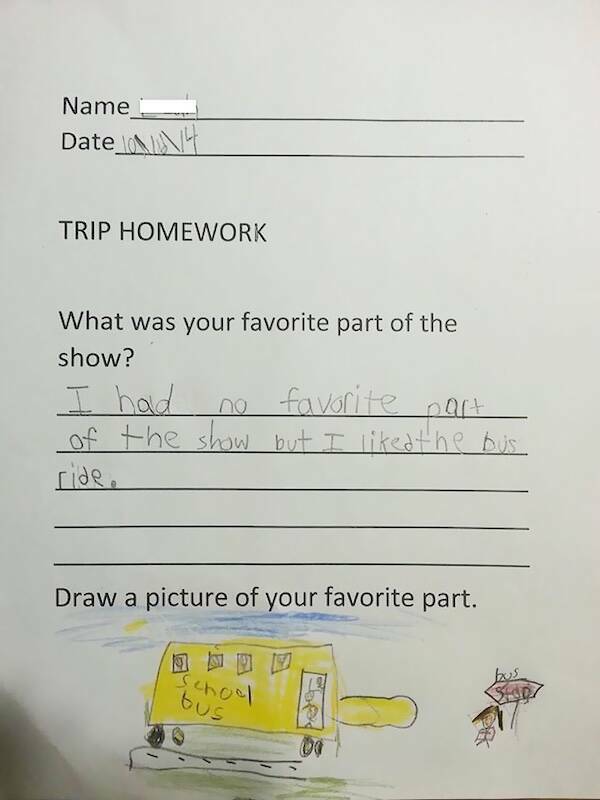 Name
Date
TRIP HOMEWORK
What was your favorite part of the
show?
I had no favorite part
of the show but I liked the bus
ride.
Draw a picture of your favorite part.
School
bus
bus
stop